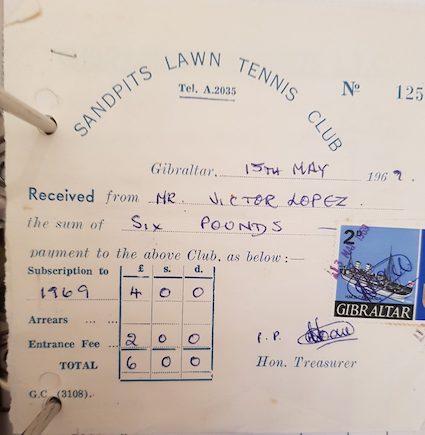 SANDPITS LAWN TENNIS CLUB
Tel. A.2035
Nº 125
Gibraltar, 15TH MAY 1969.
Received from MR. VICTOR LOPEZ
the sum of SIX POUNDS —
payment to the above Club, as below:—
Subscription to £ s. d.
1969 4 0 0
Arrears ... ...
Entrance Fee ... 2 0 0
TOTAL 6 0 0
2D
GIBRALTAR
P.P.
Hon. Treasurer
G.C (3108).